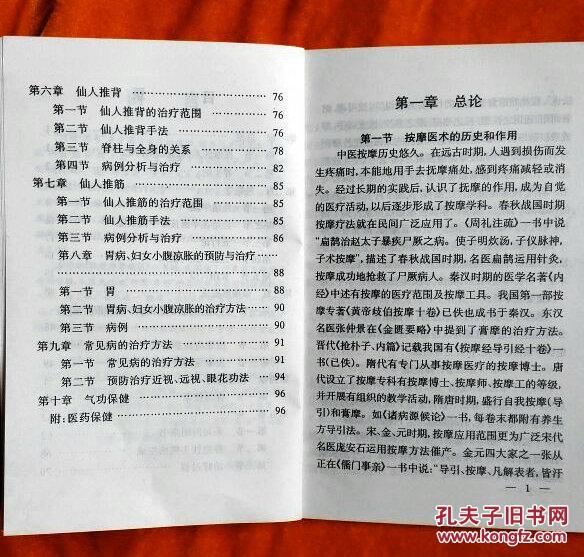 第六章 仙人推背 …………………… 76
第一节 仙人推背的治疗范围 ……… 76
第二节 仙人推背手法 ……………… 76
第三节 脊柱与全身的关系 ………… 78
第四节 病例分析与治疗 …………… 82
第七章 仙人推筋 …………………… 85
第一节 仙人推筋的治疗范围 ……… 85
第二节 仙人推筋手法 ……………… 85
第三节 病例分析与治疗 …………… 86
第八章 胃病、妇女小腹凉胀的预防与治疗 ……
…………………… 88
第一节 胃 …………………… 88
第二节 胃病、妇女小腹凉胀的治疗方法 … 90
第三节 病例 …………………… 90
第九章 常见病的治疗方法 ………… 91
第一节 常见病的治疗方法 ………… 91
第二节 预防治疗近视、远视、眼花功法 … 94
第十章 气功保健 …………………… 96
附:医药保健 …………………… 96
第一章 总论
第一节 按摩医术的历史和作用
中医按摩历史悠久。在远古时期,人遇到损伤而发
生疼痛时,本能地用手去抚摩痛处,感到疼痛减轻或消
失。经过长期的实践后,认识了抚摩的作用,成为自觉
的医疗活动,以后逐步形成了按摩学科。春秋战国时期
按摩疗法就在民间广泛应用了。《周礼注疏》一书中说
“扁鹊治赵太子暴疾尸厥之病。使子明炊汤,子仪脉神,
子术按摩”,描述了春秋战国时期,名医扁鹊运用针灸、
按摩成功地抢救了尸厥病人。秦汉时期的医学名著《内
经》中述有按摩的医疗范围及按摩工具。我国第一部按
摩专著《黄帝歧伯按摩十卷》已佚也成书于秦汉。东汉
名医张仲景在《金匮要略》中提到了膏摩的治疗方法。
晋代《抢朴子、内篇》记载我国有《按摩经导引经十卷》一
书(已佚)。隋代有专门从事按摩医疗的按摩博士。唐
代设立了按摩专科有按摩博士、按摩师、按摩工的等级,
并开展有组织的教学活动,隋唐时期,盛行自我按摩(导
引)和膏摩。如《诸病源候论》一书,每卷末都附有养生
方导引法。宋、金、元时期,按摩应用范围更为广泛宋代
名医庞安石运用按摩方法催产。金元四大家之一张从
正在《儒门事亲》一书中说:“导引、按摩、凡解表者,皆汗
— 1 —
孔夫子旧书网
www.kongfz.com